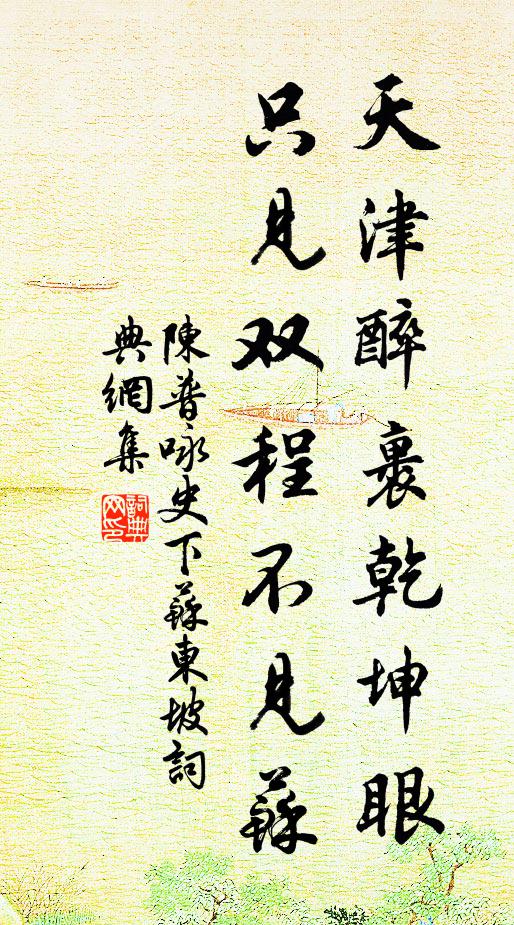 天津醉裹乾坤眼
只见双程不见蘇
陳普咏史下蘇東坡詞
典網集
詞典網印